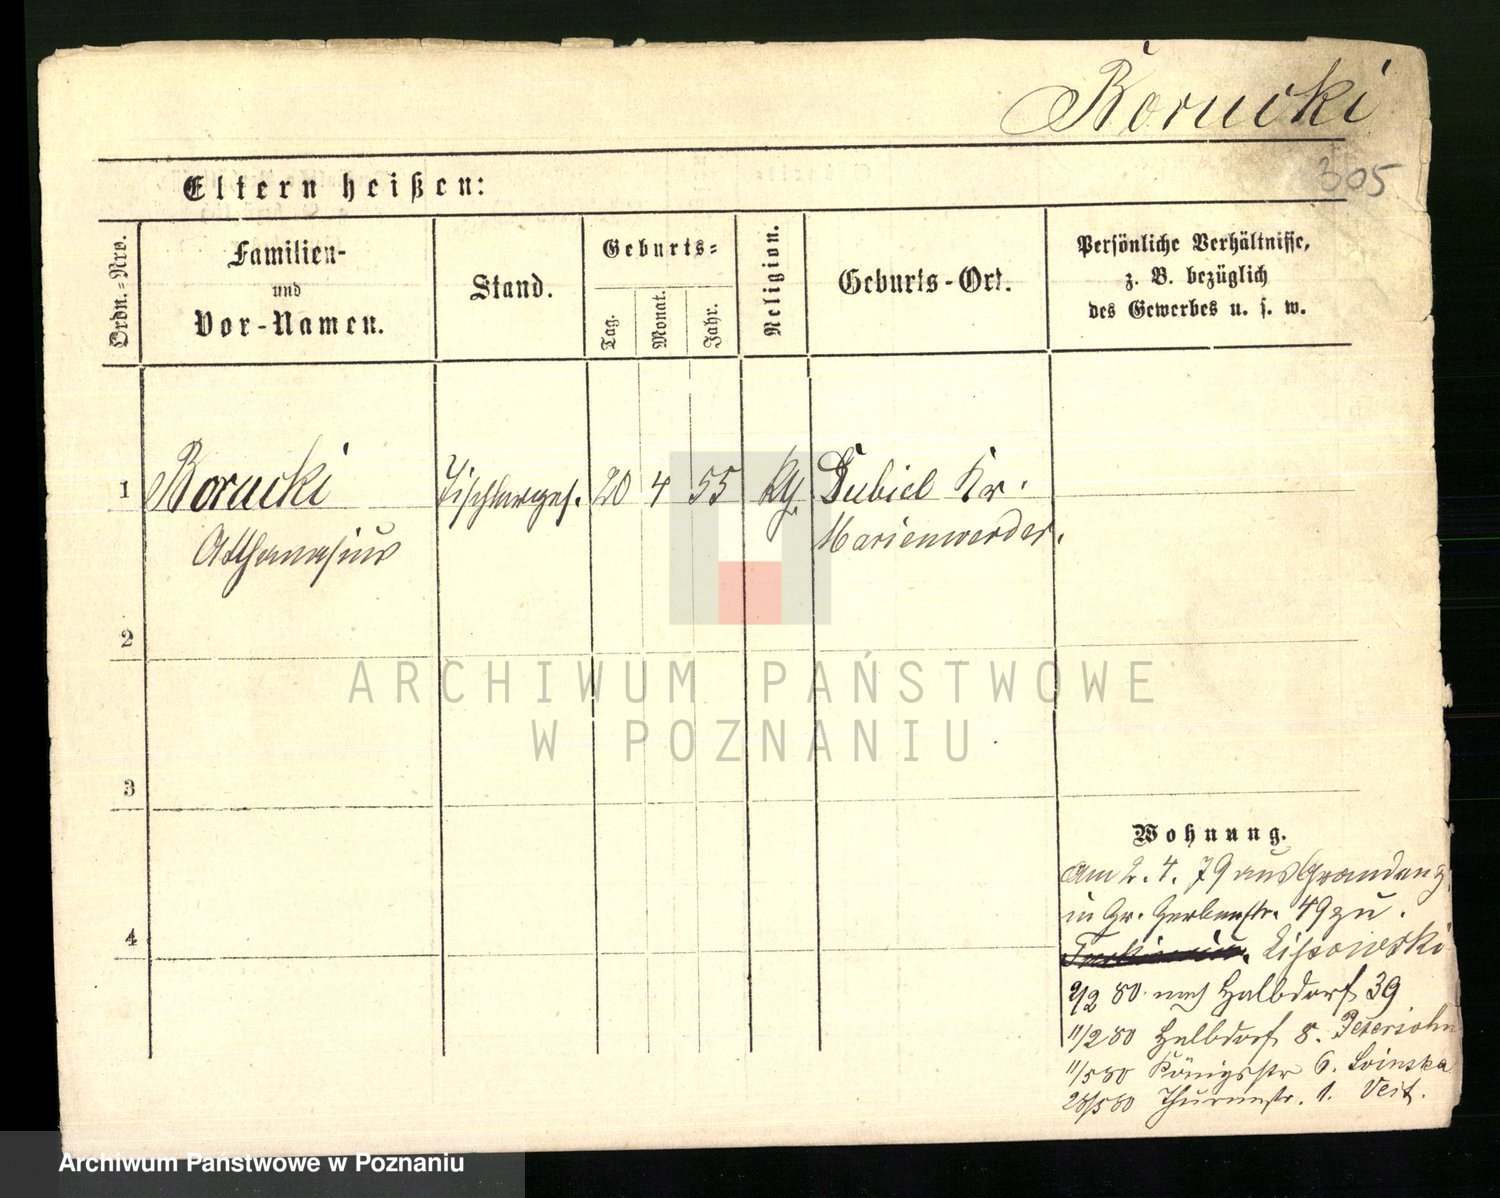 Borucki
305
Eltern heißen:
Ordn.-Nro.
Familien-
und
Vor-Namen.
Stand.
Geburts-
Tag.
Monat.
Jahr.
Religion.
Geburts-Ort.
Persönliche Verhältnisse,
z. B. bezüglich
des Gewerbes u. s. w.
1 Borucki Tischlerges. 20 4 55 Dubiel Kr.
Atthanasius Marienwerder.
2
3
4
Wohnung.
Am 2. 4. 79 aus Graudenz
in Gr. Gerberstr. 49 zu.
Lissowski
2/2 80 nach Halbdorf 39
11/2 80 Halbdorf 8. Petersohn
11/5 80 Königsstr 6.
28/5 80 Thurmstr. 1. Veit.
ARCHIWUM PAŃSTWOWE
W POZNANIU
Archiwum Państwowe w Poznaniu